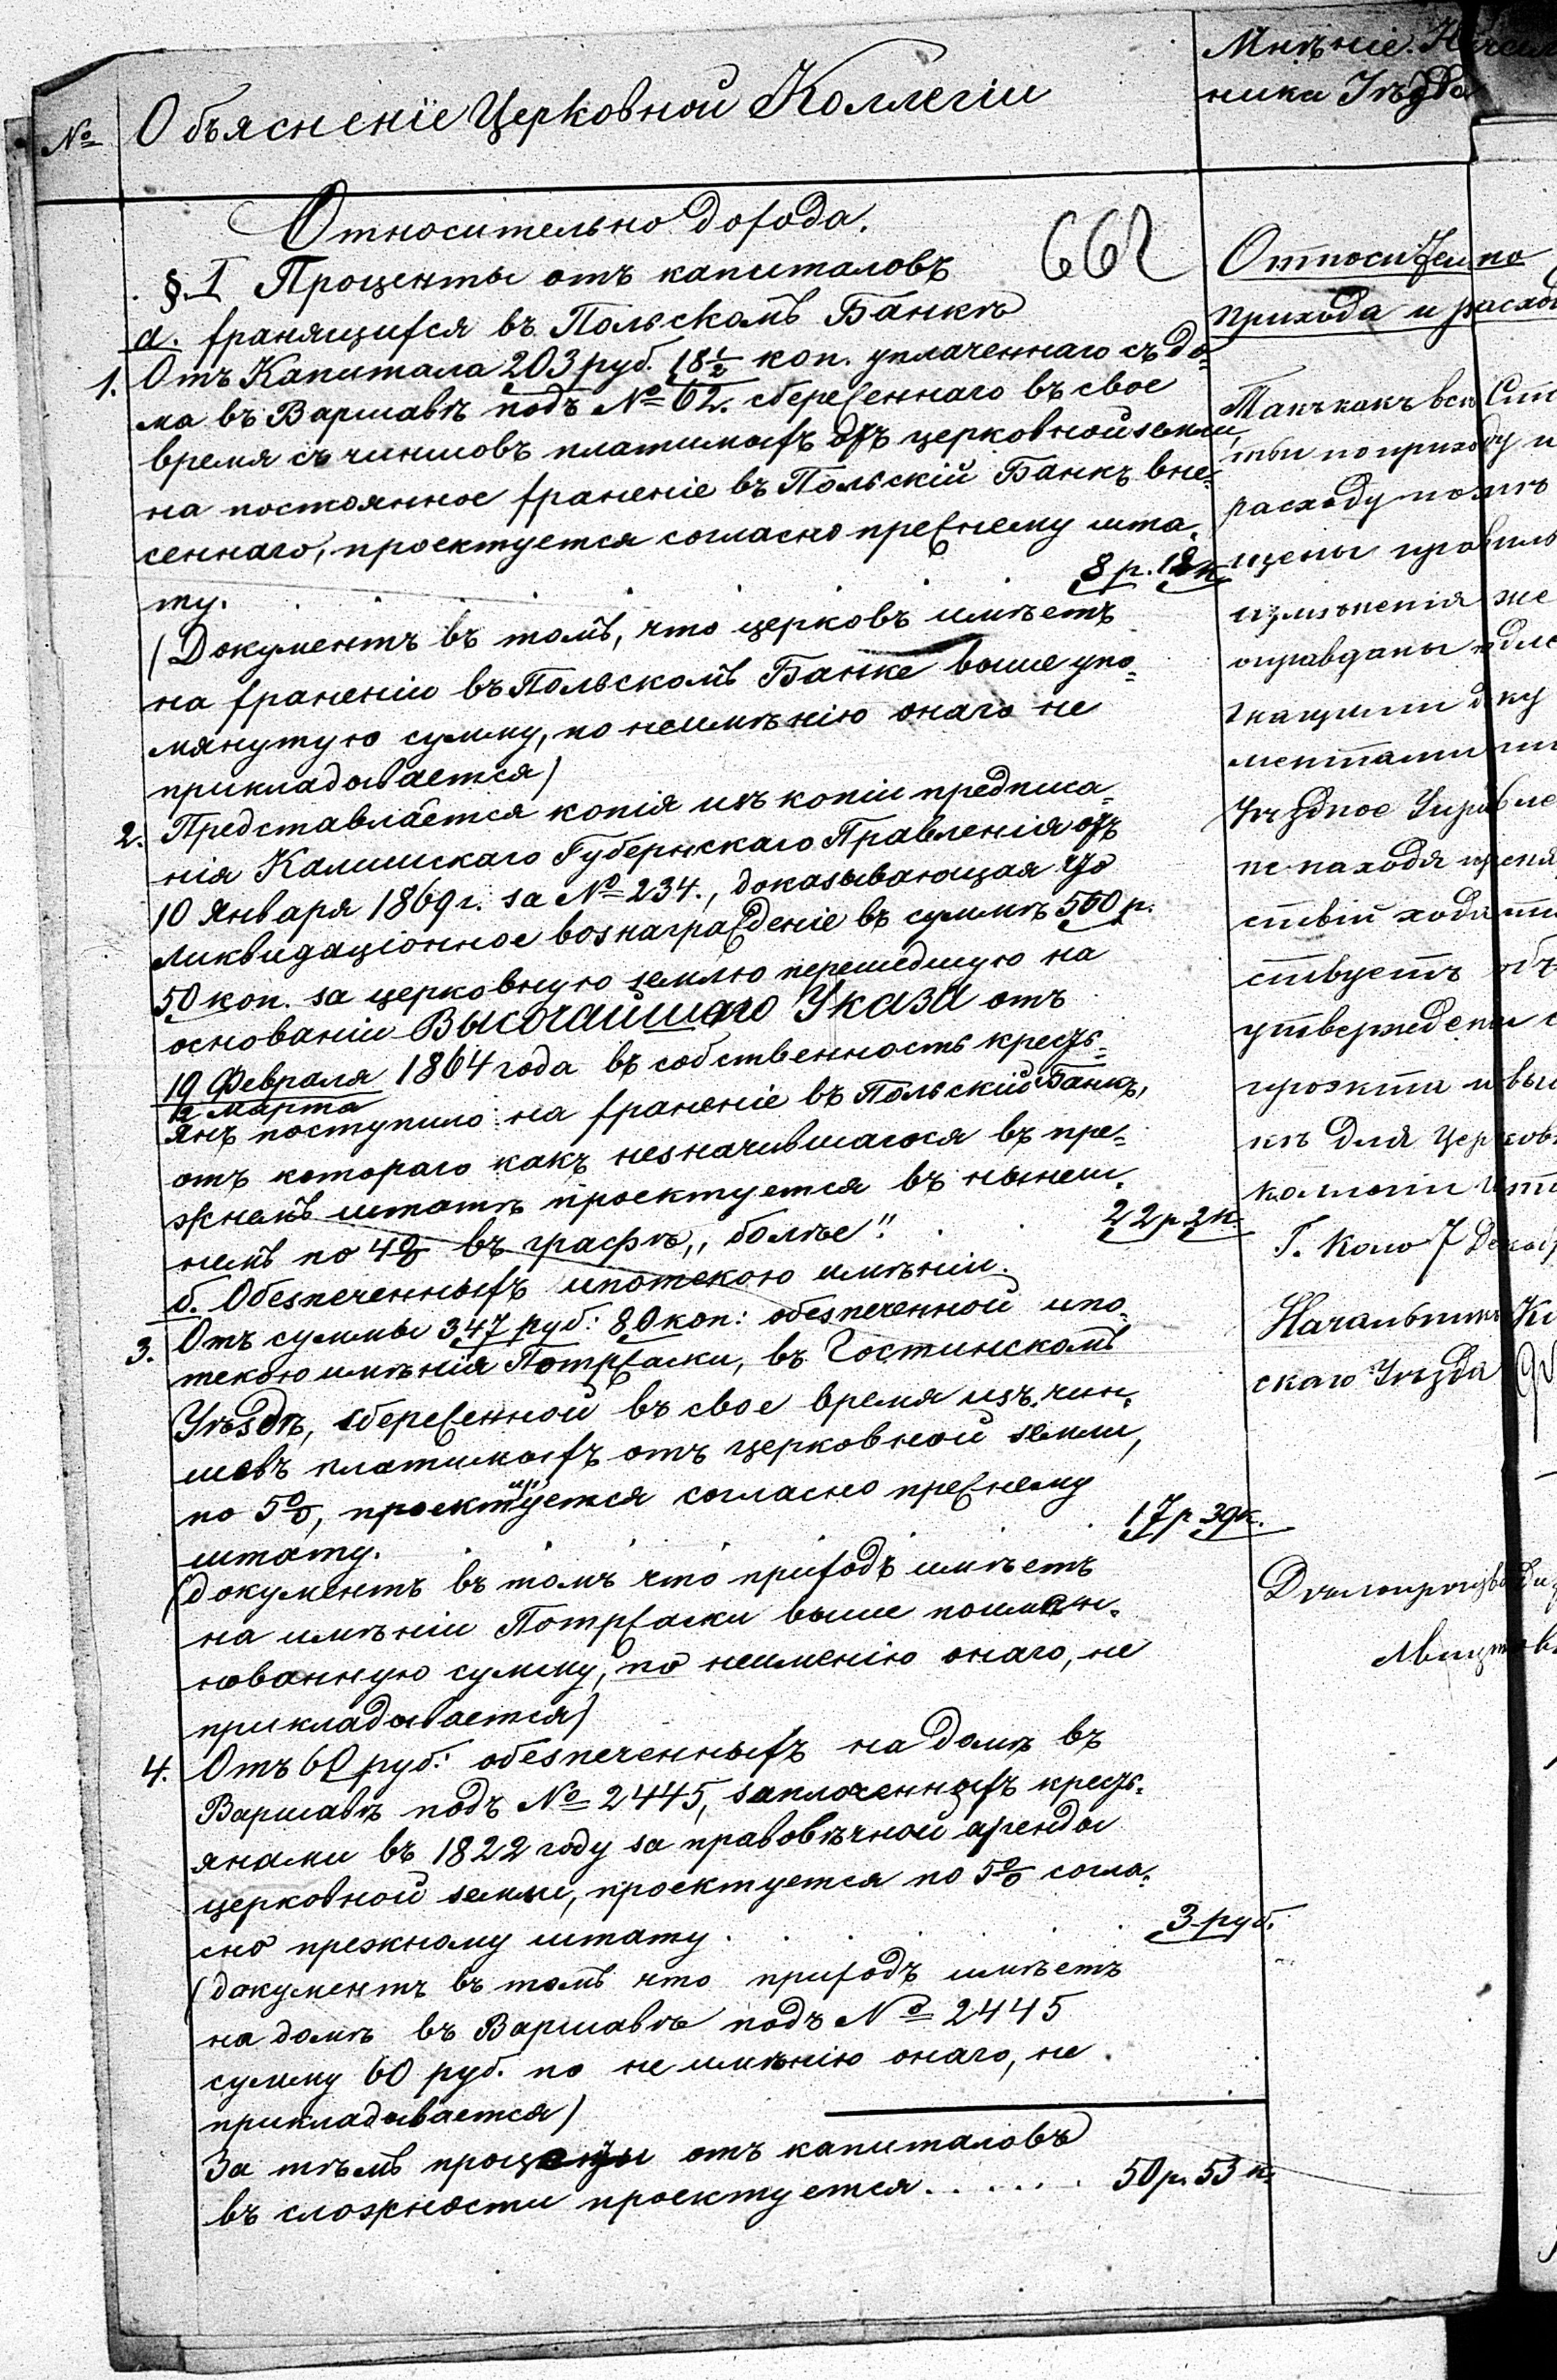 №
Объясненіе Церковной Коллегіи
Мнѣніе Началь
ника Уѣзда
Относительно дохода.
662
§ I Проценты отъ капиталовъ
а. хранящихся въ Польскомъ Банкѣ
1. Отъ Капитала 203 руб. 18½ коп. уплаченнаго съ до=
ма въ Варшавѣ подъ № 62. сбереженнаго въ свое
время съ чиншовъ платимыхъ отъ церковной земли,
на постоянное храненіе въ Польскій Банкъ вне=
сеннаго, проектуется согласно прежнему шта=
ту. . . . . . 8 р. 12 к.
(Документъ въ томъ, что церковъ имѣетъ
на храненіи въ Польскомъ Банке выше упо=
мянутую сумму, по неимѣнію онаго не
прикладывается)
2. Представляется копія изъ копіи предписа=
нія Калишскаго Губернскаго Правленія отъ
10 Января 1869 г. за № 234., доказывающая что
ликвидаціонное вознагражденіе въ суммѣ 550 р.
50 коп. за церковную землю перешедшую на
основаніи Высочайшаго Указа отъ
19 Февраля 1864 года въ собственность крестъ=
2 Марта
янъ поступило на храненіе въ Польскій Банкъ,
отъ котораго какъ незначившагося въ пре=
жнемъ штатѣ проектуется въ нынеш=
немъ по 4% въ графѣ „болѣе". . . 22 р 2 к.
б. Обезпеченныхъ ипотекою имѣніи.
3. Отъ суммы 347 руб: 80 коп: обезпеченной ипо=
текою имѣнія Потржаски, въ Гостинскомъ
Уѣздѣ, сбереженной въ свое время изъ чин=
шевъ платимыхъ отъ церковной земли,
по 5%, проектуется согласно прежнему
штату. . . . . 17 р 39 к.
(документъ въ томъ что приходъ имѣетъ
на имѣніи Потржаски выше поимян=
нованную сумму, по неименію онаго, не
прикладывается)
4. Отъ 60 руб: обезпеченныхъ на домѣ въ
Варшавѣ подъ № 2445, заплоченныхъ крестъ=
янами въ 1822 году за правовѣчной аренды
церковной земли, проектуется по 5% согла=
сно прежному штату . . . . 3 руб.
(документъ въ томъ что приходъ имѣетъ
на домѣ въ Варшавѣ подъ № 2445
сумму 60 руб. по не имѣнію онаго, не
прикладывается)
За тѣмъ проценты отъ капиталовъ
въ сложности проектуется . . . . . 50 р. 53 к.
Относительно
прихода и расхо
Такъ какъ всѣ Ста
тьи по приходу и
расходу помѣ
щены правиль
измѣненія же
оправданы
ментами
Уѣздное Управле
не находя препя
ствій
ствуетъ объ
утвержденіи
проэкта
кѣ для Церков
коллегіи
Г. Коло 7 Декабр
Начальникъ
скаго Уѣзда
Дѣлопроизводи